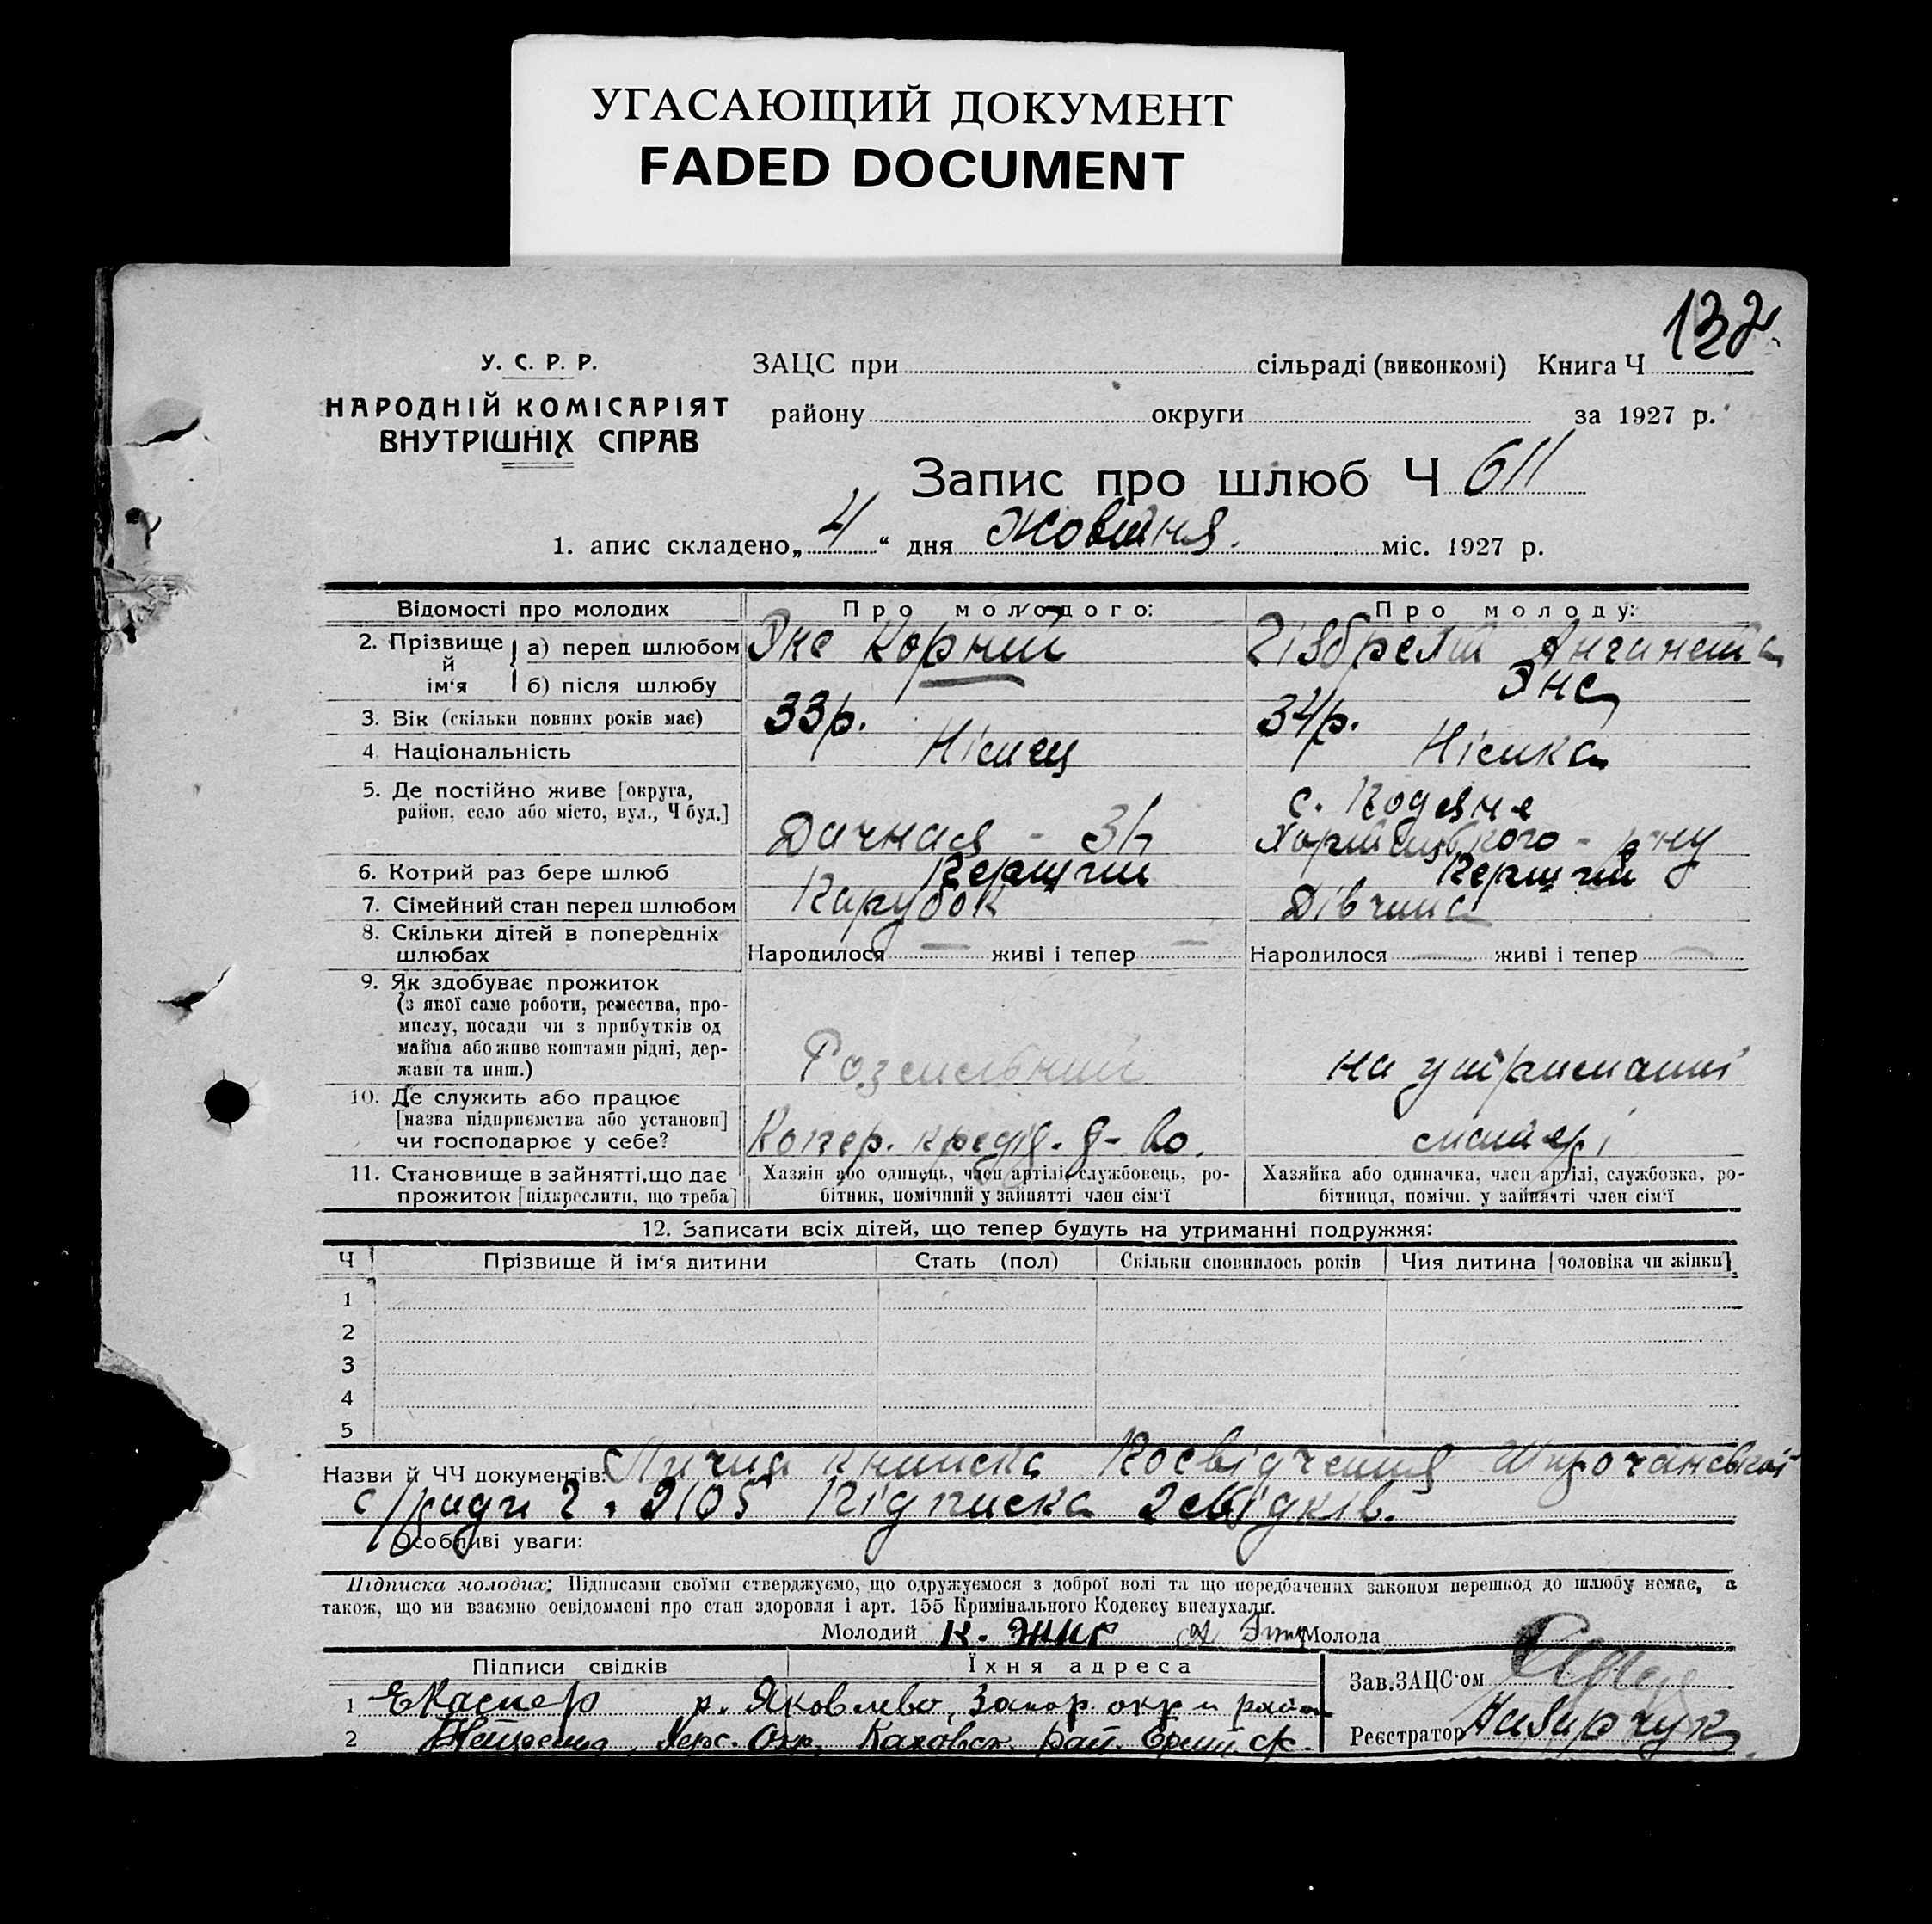 УГАСАЮЩИЙ ДОКУМЕНТ
FADED DOCUMENT
132
У. С. Р. Р.
НАРОДНІЙ КОМІСАРІЯТ
ВНУТРІШНІХ СПРАВ
ЗАЦС при сільраді (виконкомі) Книга Ч
району округи за 1927 р.
Запис про шлюб Ч 611
1. апис складено „4“ дня Жовтня міс. 1927 р.
Відомості про молодих Про молодого: Про молоду:
2. Прізвище й ім‘я
а) перед шлюбом Энс Корний
б) після шлюбу Энс
3. Вік (скільки повних років має) 33р. 34р.
4. Національність Німец Німка
5. Де постійно живе [округа,
район, село або місто, вул., Ч буд.]
Дачная с.
6. Котрий раз бере шлюб Перший Перший
7. Сімейний стан перед шлюбом Парубок Дівчина
8. Скільки дітей в попередніх
шлюбах
Народилося — живі і тепер — Народилося — живі і тепер —
9. Як здобуває прожиток
(з якої саме роботи, ремества, про-
мислу, посади чи з прибутків од
майна або живе коштами рідні, дер-
жави та инш.)
Розсильний на утриманні
10. Де служить або працює
[назва підприємства або установи]
чи господарює у себе?
Копер. кредит. матері
11. Становище в зайнятті, що дає
прожиток [підкреслити, що треба]
Хазяін або одинець, член артілі, службовець, ро-
бітник, помічний у зайнятті член сім‘ї
Хазяйка або одиначка, член артілі, службовка, ро-
бітниця, помічн. у зайнятті член сім‘ї
12. Записати всіх дітей, що тепер будуть на утриманні подружжя:
Ч Прізвище й ім‘я дитини Стать (пол) Скільки сповнилось років Чия дитина [чоловіка чи жінки]
1
2
3
4
5
Назви й ЧЧ документів: книжка Посвідчення
с/ради 2105 Підписка 2 свідків.
Особливі уваги:
Підписка молодих: Підписами своїми стверджуємо, що одружуємося з доброї волі та що передбачених законом перешкод до шлюбу немає, а
також, що ми взаємно освідомлені про стан здоровля і арт. 155 Кримінального Кодексу вислухали.
Молодий К. Энс Молода
Підписи свідків Їхня адреса
1 Яковлево, Запор. окр и район
2 Херс. Окр. Каховск. рай.
Зав. ЗАЦС‘ом
Реєстратор